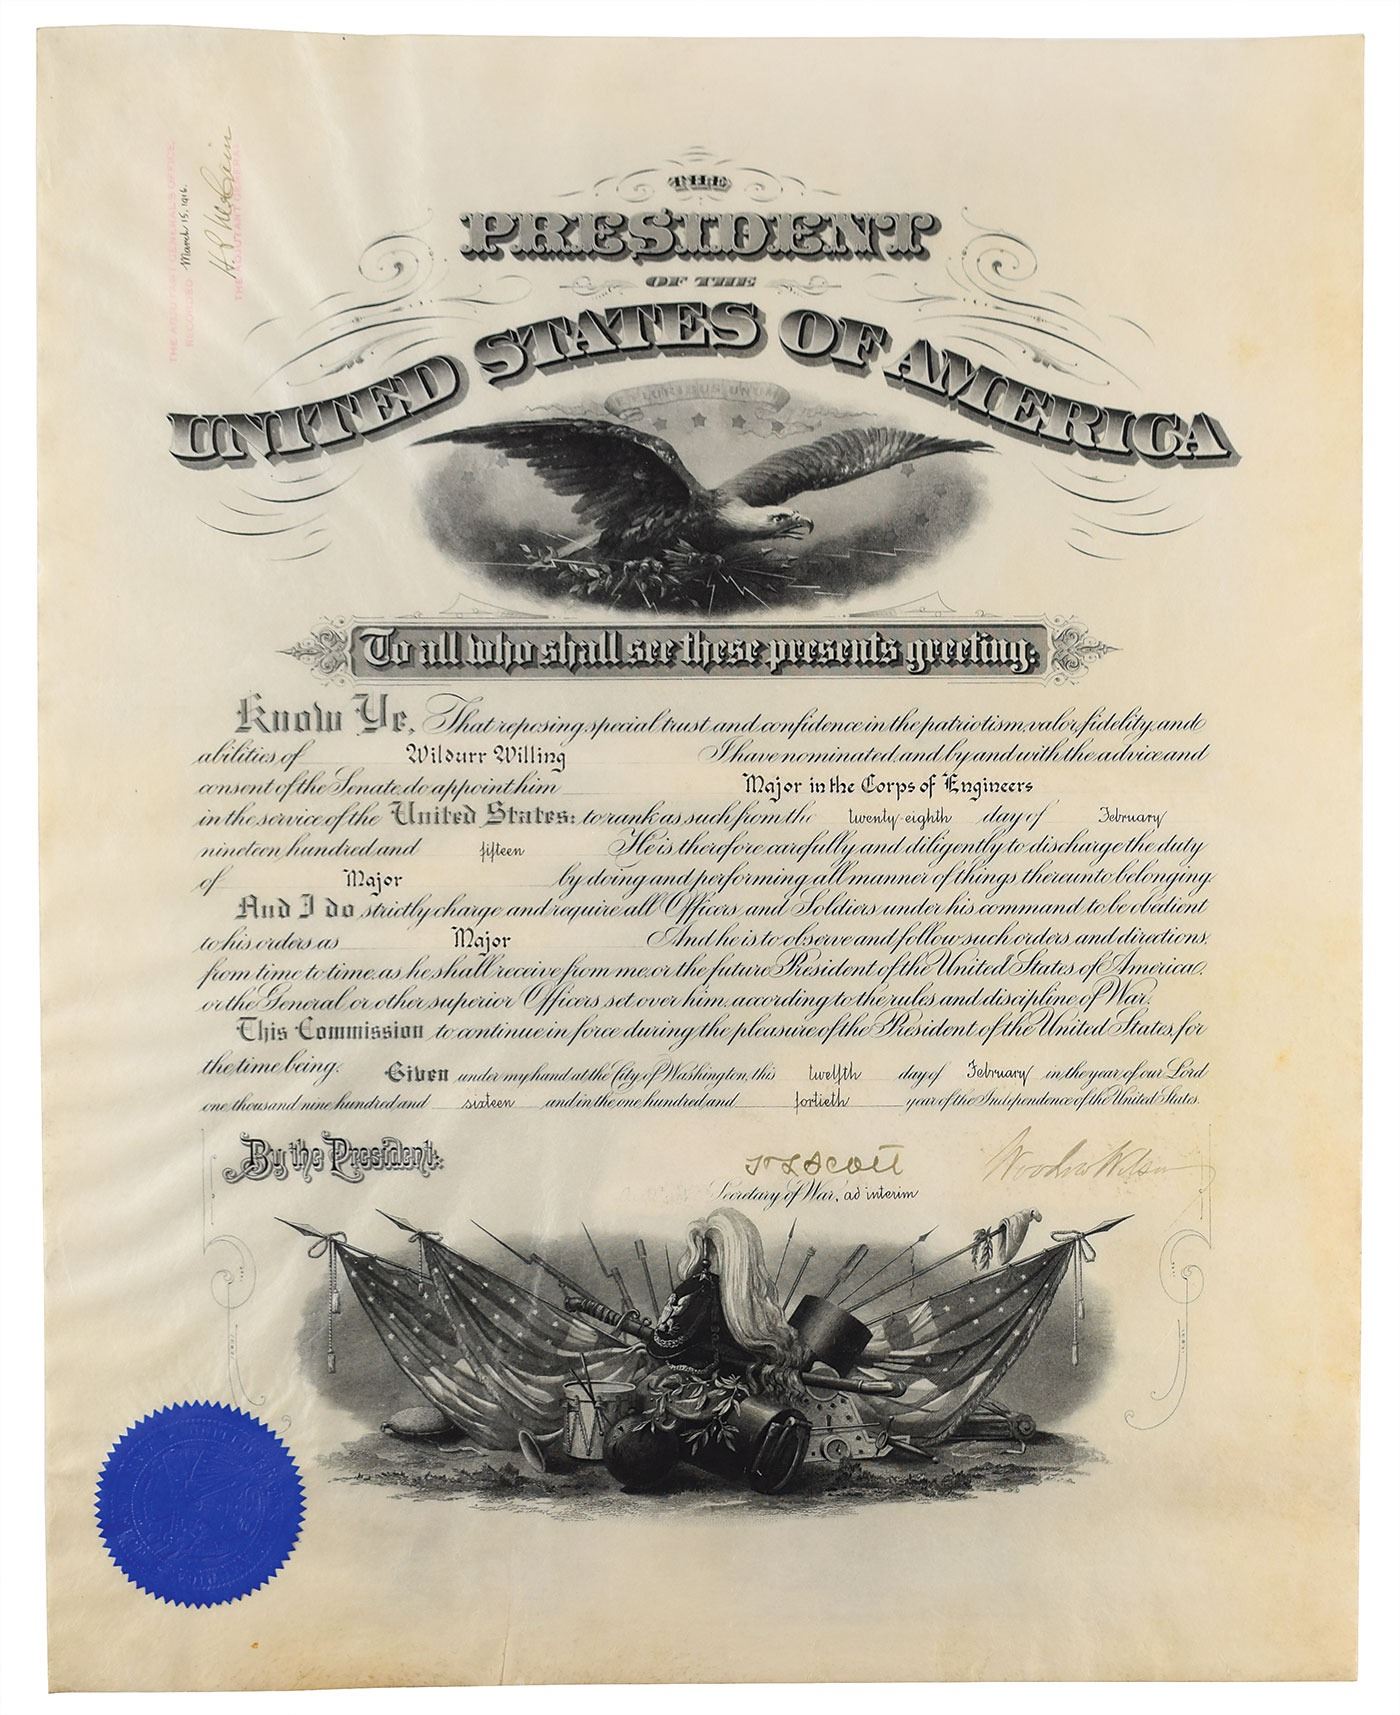 THE ADJUTANT GENERAL'S OFFICE,
RECORDED March 15, 1916.
H P McCain
THE ADJUTANT GENERAL.
THE
PRESIDENT
OF THE
UNITED STATES OF AMERICA
E PLURIBUS UNUM
To all who shall see these presents greeting:
Know Ye, That reposing special trust and confidence in the patriotism, valor, fidelity, and
abilities of Wildurr Willing I have nominated, and by and with the advice and
consent of the Senate, do appoint him Major in the Corps of Engineers
in the service of the United States: to rank as such from the twenty-eighth day of February
nineteen hundred and fifteen He is therefore carefully and diligently to discharge the duty
of Major by doing and performing all manner of things thereunto belonging.
And I do strictly charge, and require all Officers and Soldiers under his command to be obedient
to his orders as Major And he is to observe and follow such orders, and directions,
from time to time, as he shall receive from me, or the future President of the United States of America,
or the General or other superior Officers set over him, according to the rules and discipline of War.
This Commission to continue in force during the pleasure of the President of the United States, for
the time being. Given under my hand at the City of Washington, this twelfth day of February in the year of our Lord
one thousand nine hundred and sixteen and in the one hundred and fortieth year of the Independence of the United States.
By the President:
H L Scott
Secretary of War, ad interim
Woodrow Wilson